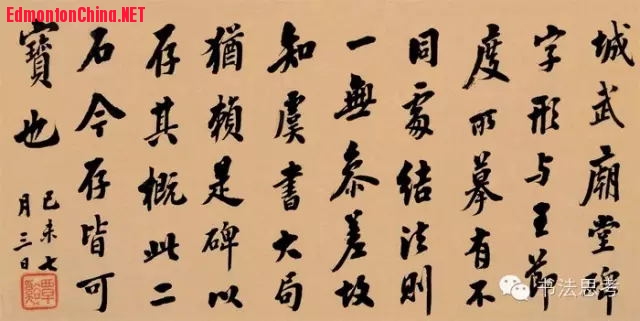 EdmontonChina.NET
城武廟堂碑
字形与王節
度所摹有不
同處結法則
一無參差故
知虞書大局
猶賴是碑以
存其概此二
石今存皆可
寶也
己未七
月三日
书法思考